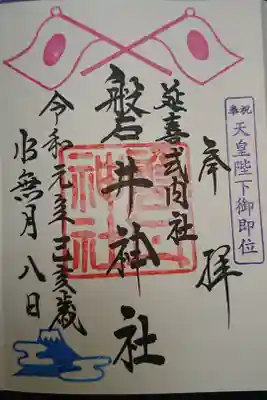 奉祝
天皇陛下御即位
奉拝
延喜式内社
磐井神社
令和元年己亥歳
水無月八日